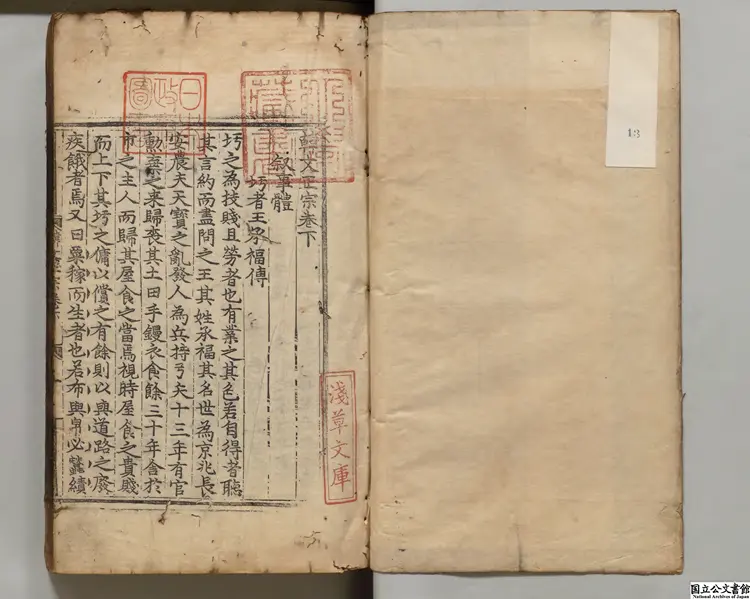 韓文正宗卷下
叙事體
圬者王承福傳
圬之為技賤且勞者也有業之其色若自得者聽
其言約而盡問之王其姓承福其名世為京兆長
安農夫天寶之亂發人為兵持弓矢十三年有官
勳棄之来歸喪其土田手鏝衣食餘三十年舍於
市之主人而歸其屋食之當焉視時屋食之貴賤
而上下其圬之傭以償之有餘則以與道路之廢
疾餓者焉又曰粟稼而生者也若布與帛必蠶績
淺草文庫
13
国立公文書館
National Archives of Japan